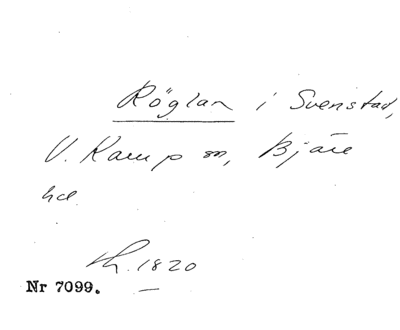 Röglan i Svenstad,
V. Karup sn, Bjäre
hd.
1820
Nr 7099.